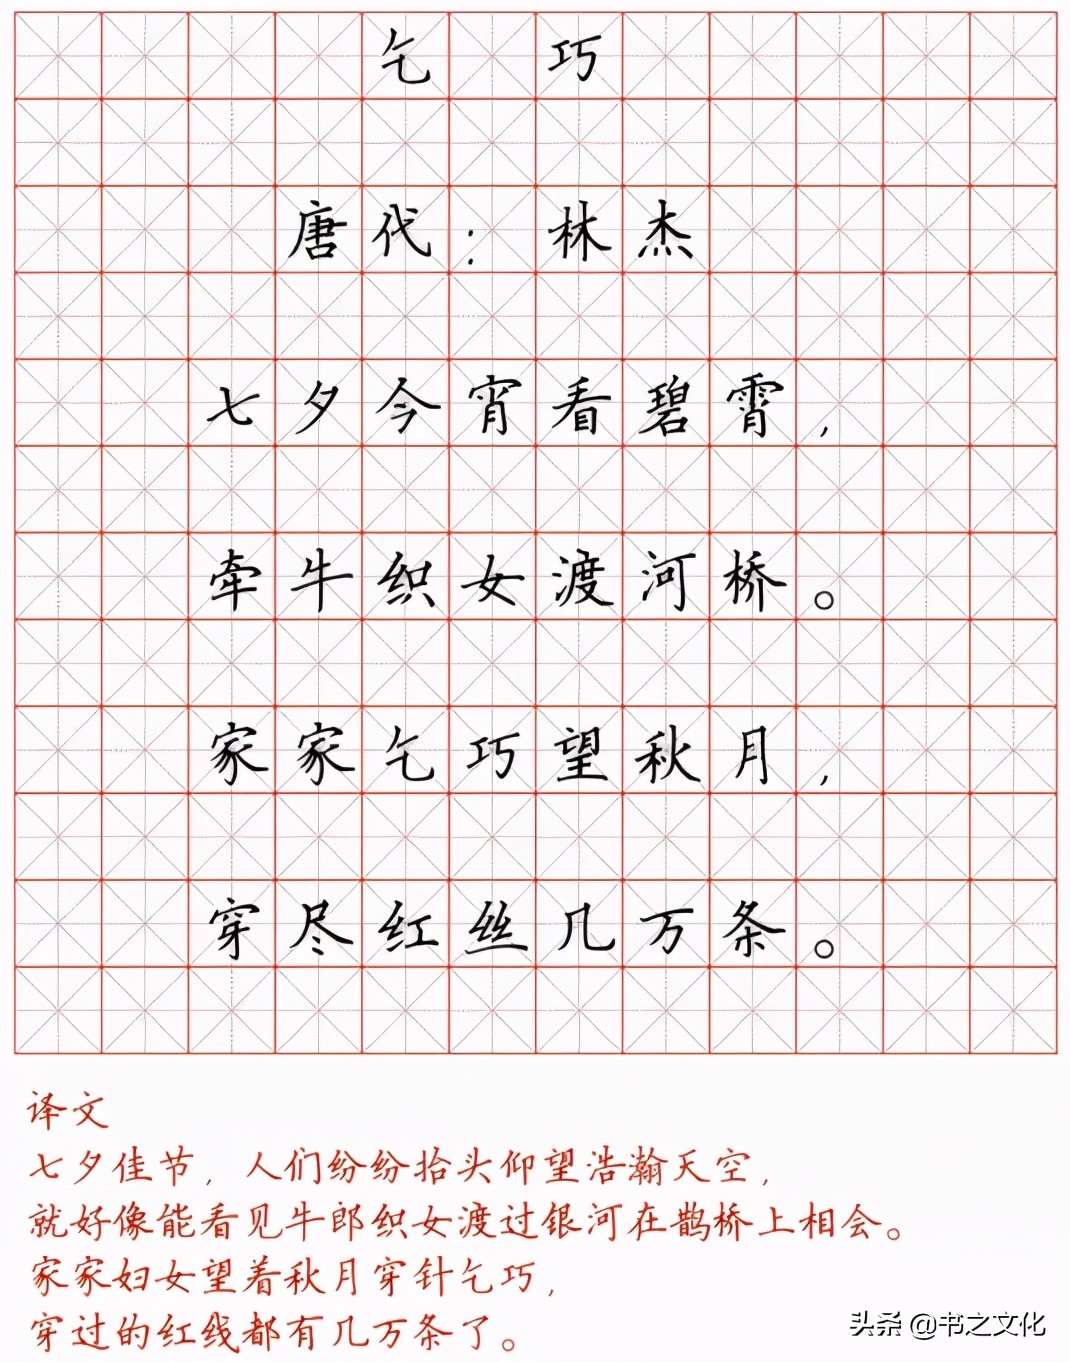 乞 巧
唐代：林杰
七夕今宵看碧霄，
牵牛织女渡河桥。
家家乞巧望秋月，
穿尽红丝几万条。
译文
七夕佳节，人们纷纷抬头仰望浩瀚天空，
就好像能看见牛郎织女渡过银河在鹊桥上相会。
家家妇女望着秋月穿针乞巧，
穿过的红线都有几万条了。
头条 @书之文化